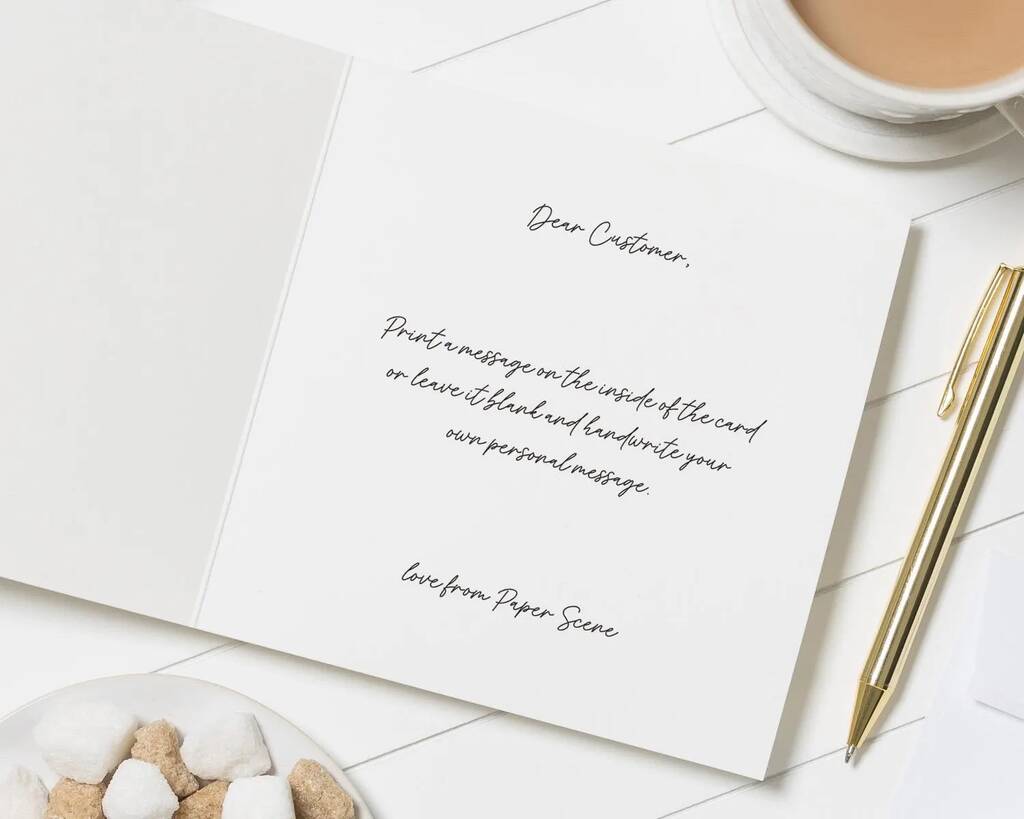 Dear Customer,
Print a message on the inside of the card
or leave it blank and handwrite your
own personal message.
love from Paper Scene